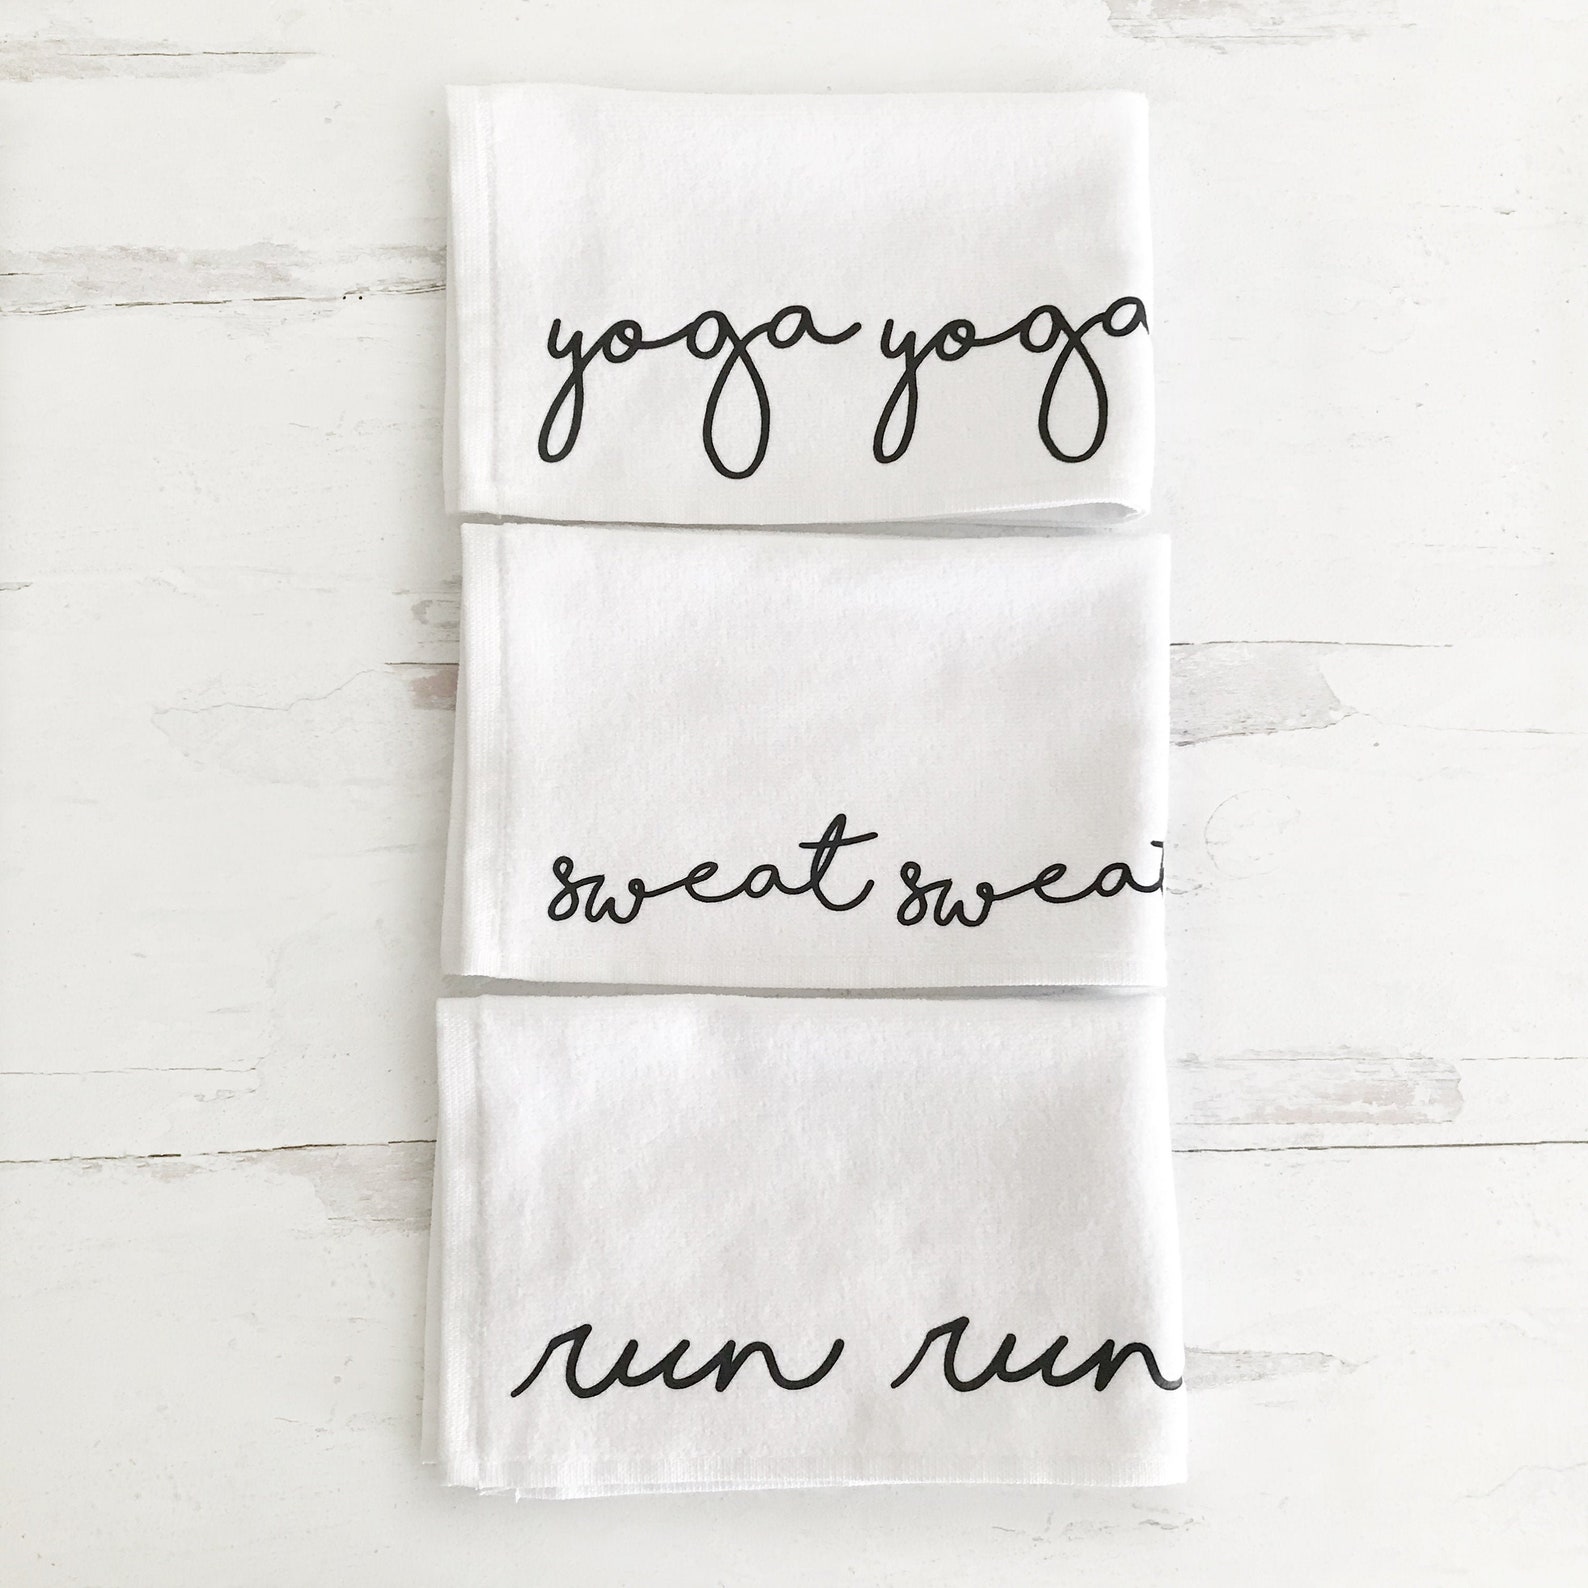 yoga yoga
sweat sweat
run run